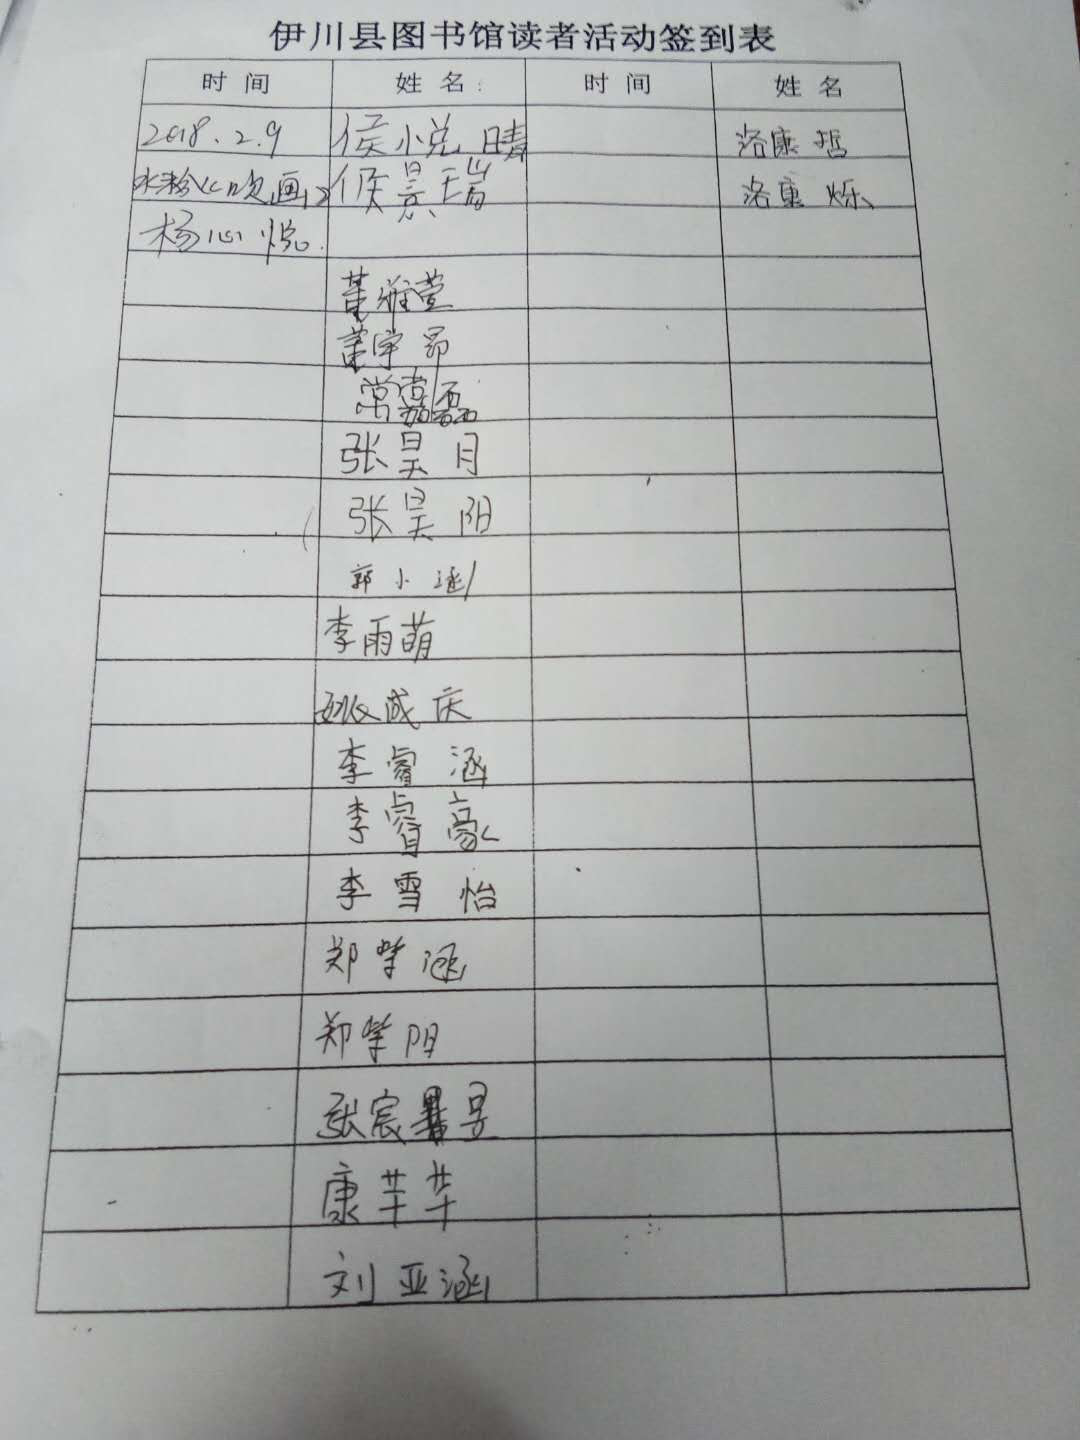 伊川县图书馆读者活动签到表
时间 姓名: 时间 姓名
2018.2.9 侯小悦 晴 洛康哲
水粉《吹画》 侯景瑞 洛康烁
杨心悦.
董維萱
董宇昂
常嘉磊
张昊月
张昊阳
郭小涵
李雨萌
成庆
李睿涵
李睿豪
李雪怡
郑紫涵
郑紫阳
张宸昱
康芊芊
刘亚涵